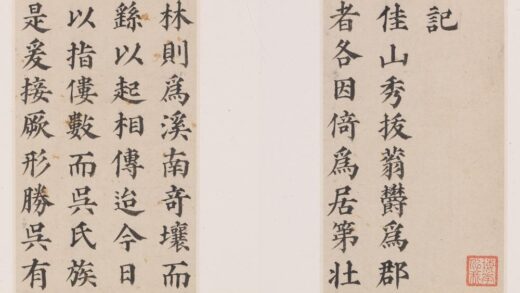 記
佳山秀拔蓊欝爲郡
者各因倚爲居第壯
林則爲溪南奇壤而
繇以起相傳迨今日
以指僂數而吳氏族
是爰接厥形勝吳有